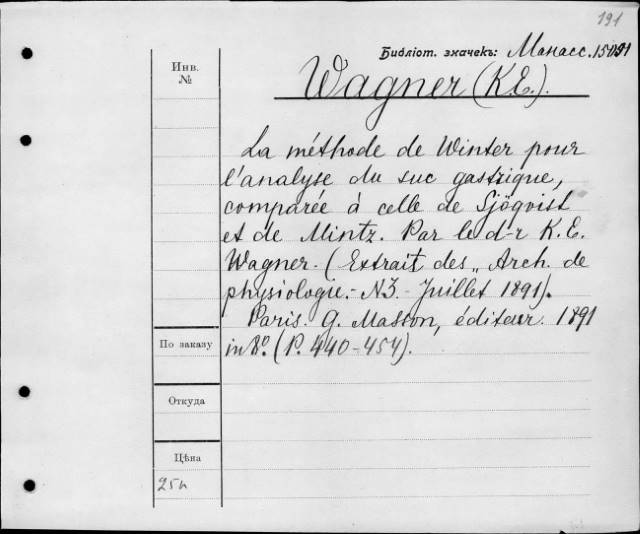 191
Библіот. значекъ: Манасс. 15091
Инв.
№
Wagner (K.E.).
La méthode de Winter pour
l'analyse du suc gastrique,
comparée à celle de Sjöqvist
et de Mintz. Par le d-r K. E.
Wagner. (Extrait des „Arch. de
physiologie.- N3.- Juillet 1891).
Paris. G. Masson, éditeur. 1891
По заказу
in 8º. (P. 440-454).
Откуда
Цѣна
25к